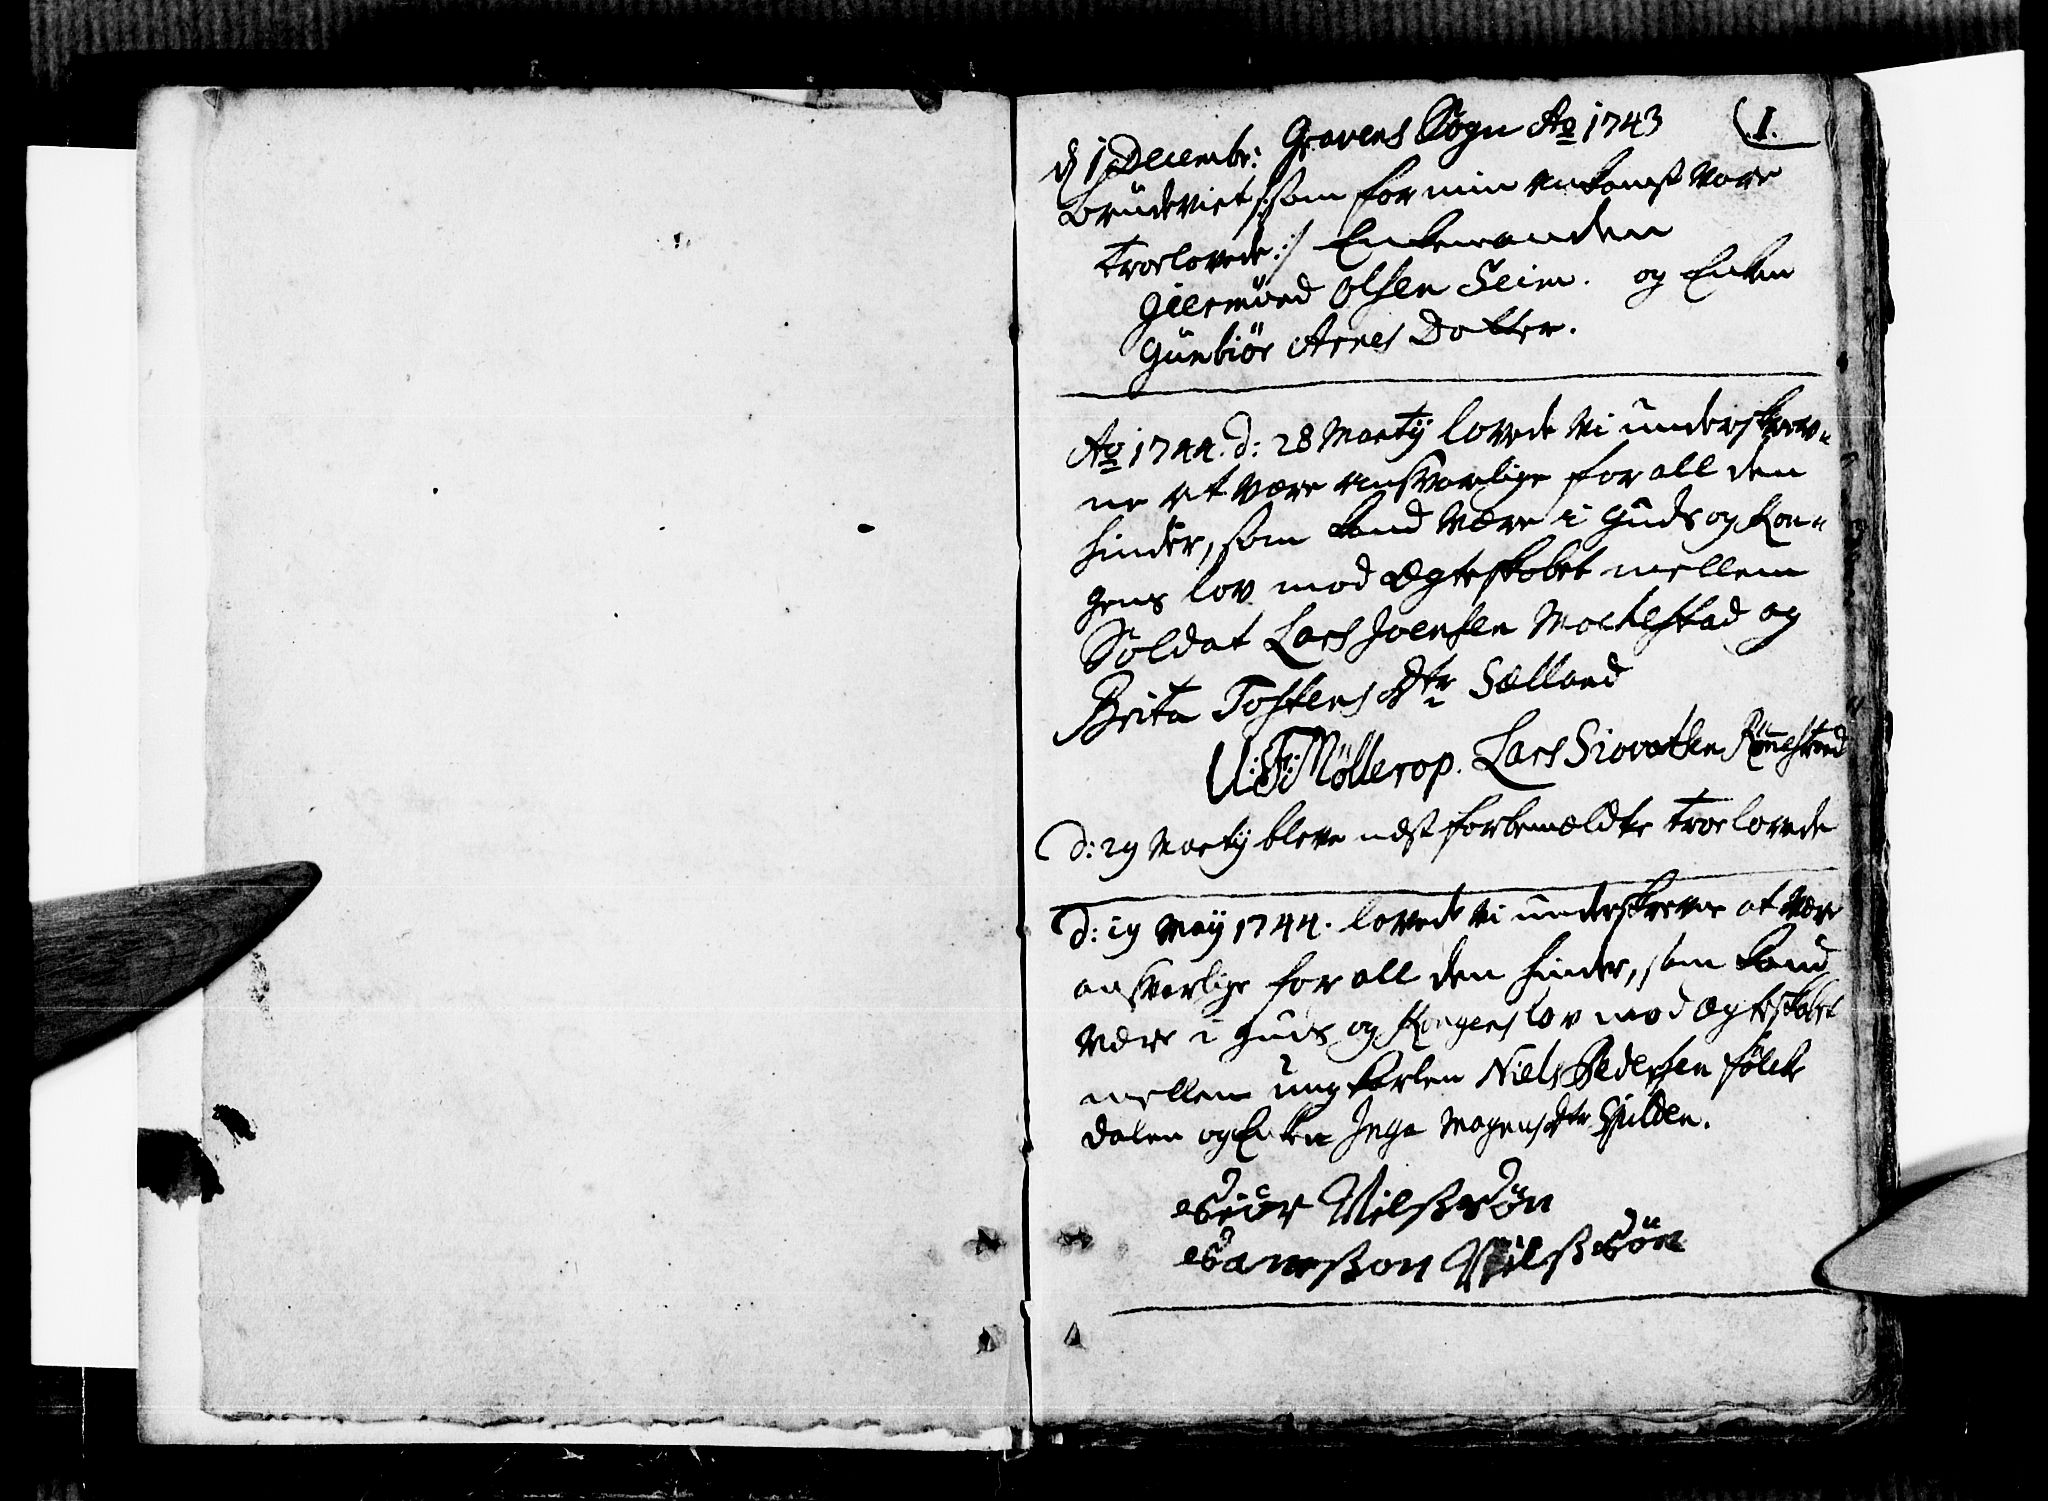 Gravens Sogn Ao 1743 (1.
d 1 Decembr:
Brudeviet /: som for min ankomst vare
troelovede :/ Enkemanden
Giermund Olsen Seim. og Enken
Gunbiør Arnes Datter.
Ao 1744. d: 28 Martij lovede vi underskrev-
ne at være ansvarlige for all den
hinder, som kand være i Guds og Kon-
gens lov mod Ægteskabet mellem
Soldat Lars Joensen Mochestad og
Brita Tostens Dtr Sælland
U: F: Møllerop. Lars Siovatsen Rønestrand
d: 29 Martij bleve næst forbemældte troelovede
d: 19 Maij 1744. lovede vi underskrevne at være
ansvarlige for all den hinder, som kand
være i Guds og Kongens lov mod Ægteskabet
mellem ungkarlen Niels Pedersen Følche
dalen og Enken Inga Magens Dtr Spilden.
Siur Nilßsøn
Samßon Nilßsøn